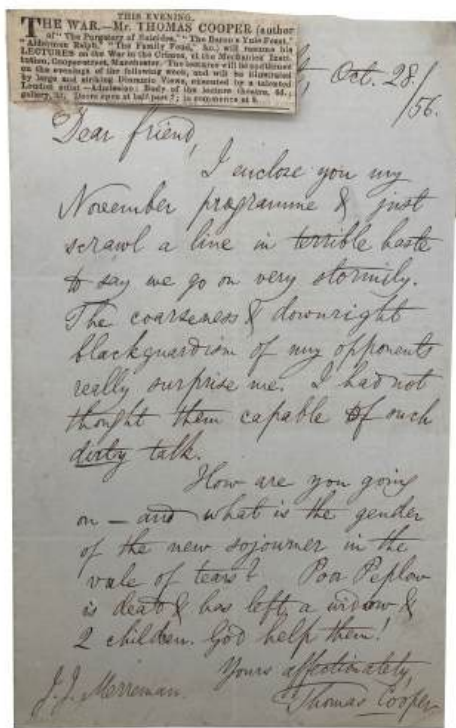 THIS EVENING.
THE WAR.—Mr. THOMAS COOPER (author
of "The Purgatory of Suicides," "The Baron's Yule Feast,"
"Alderman Ralph," "The Family Feud," &c.) will resume his
LECTURES on the War in the Crimea, at the Mechanics' Insti-
tution, Cooper-street, Manchester. The lectures will be continued
on the evenings of the following week, and will be illustrated
by large and striking Dioramic Views, executed by a talented
London artist.—Admission: Body of the lecture theatre, 6d.;
gallery, 3d. Doors open at half-past 7; to commence at 8.
Oct. 28/
/56.
Dear friend,
I enclose you my
November programme & just
scrawl a line in terrible haste
to say we go on very stormily.
The coarseness & downright
blackguardism of my opponents
really surprise me. I had not
thought them capable of such
dirty talk.
How are you going
on — and what is the gender
of the new sojourner in the
vale of tears? Poor Peplow
is dead & has left a widow &
2 children. God help them!
Yours affectionately,
J. J. Merreman.
Thomas Cooper